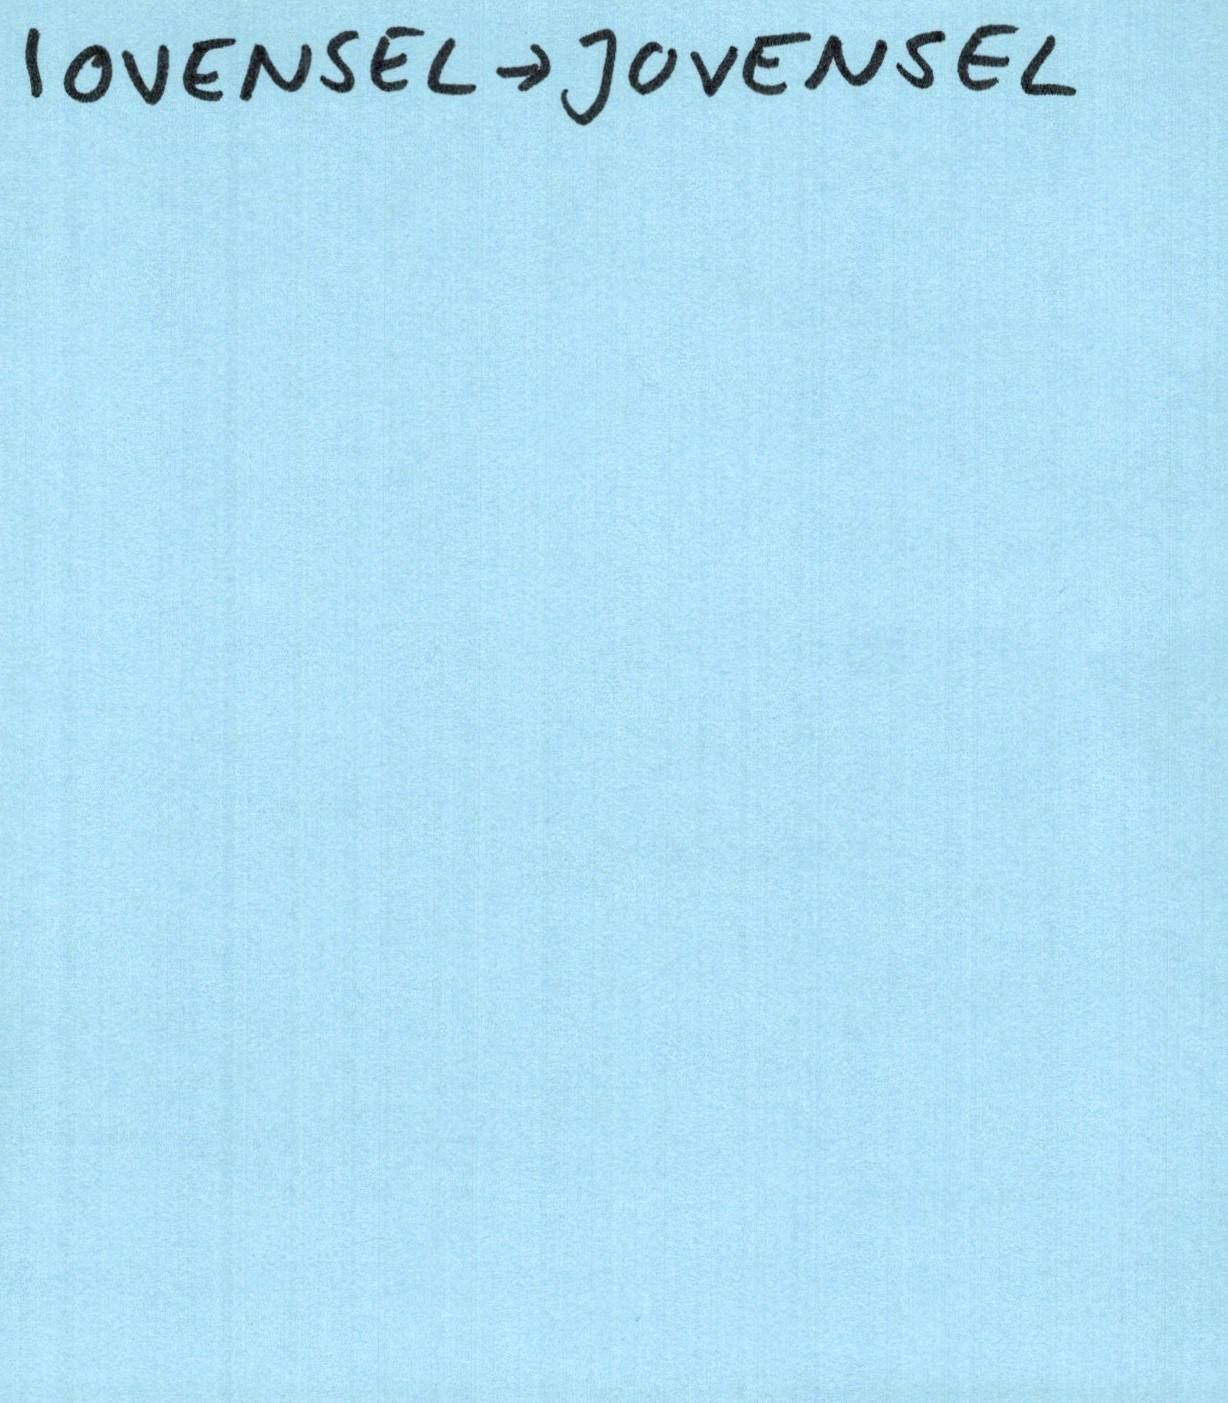 IOVENSEL→JOVENSEL